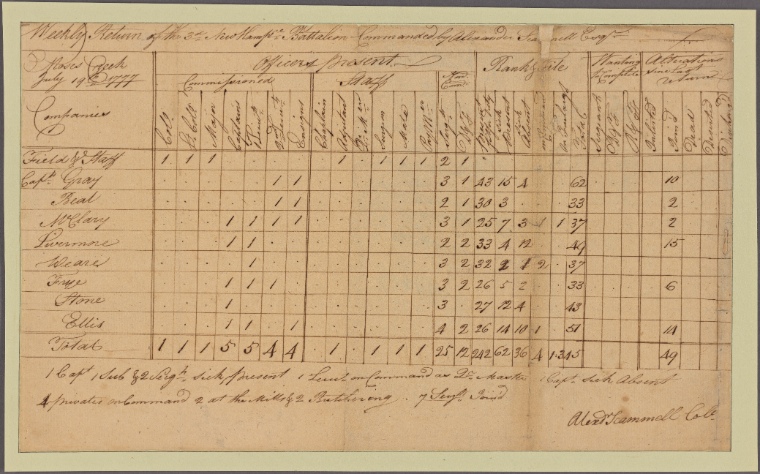 Weekly Return of the 3d. New Hamps. Battalion Commanded by Alexander Scammell Esqr.
Moses Creek
July 19th 1777
Officers present
Rank & file
Wanting to Complete
Alterations since last return
Commissioned
Staff
Companies
Colo. Lt. Colo. Major Captains Ensigns Chaplain Adjutant Qr. Mr. Surgeon Mate Total Sergeants Joined Dead Deserted Discharged
Field & Staff 1 1 1 · · · · · 1 · 1 1 1 2 1
Capt. Gray 1 1 3 1 43 15 4 62 10
Beal 1 1 2 1 30 3 33 2
McClary 1 1 1 1 3 1 25 7 3 1 1 37 2
Livermore 1 1 2 2 33 4 12 49 15
Weare 1 3 2 32 2 1 2 37
Frye 1 1 1 3 2 26 5 2 33 6
Stone 1 3 27 12 4 43
Ellis 1 1 1 4 2 26 14 10 1 51 14
Total 1 1 1 5 5 4 4 · 1 · 1 1 1 25 12 242 62 36 4 1 345 49
1 Capt 1 Sub & 2 Sergts. sick present 1 Lieut on Command as Qr. Master 1 Capt. sick Absent
4 privates on Command 2 at the Mills & 2 . 7 Sergts. Joind
Alexr. Scammell Colo.